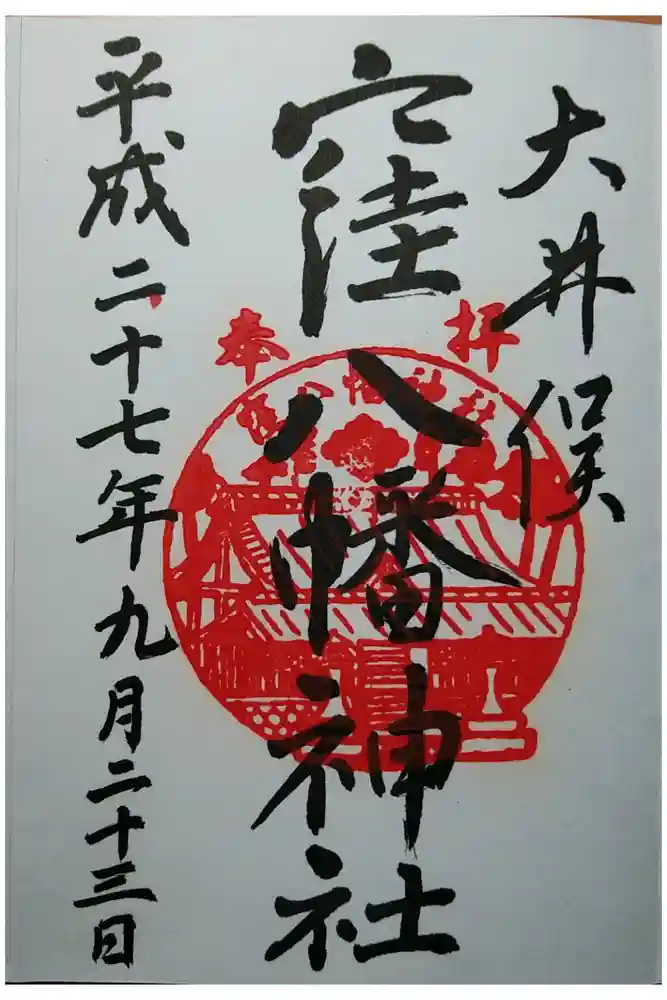 大井俣
窪八幡神社
奉拝
窪八幡神社
平成二十七年九月二十三日